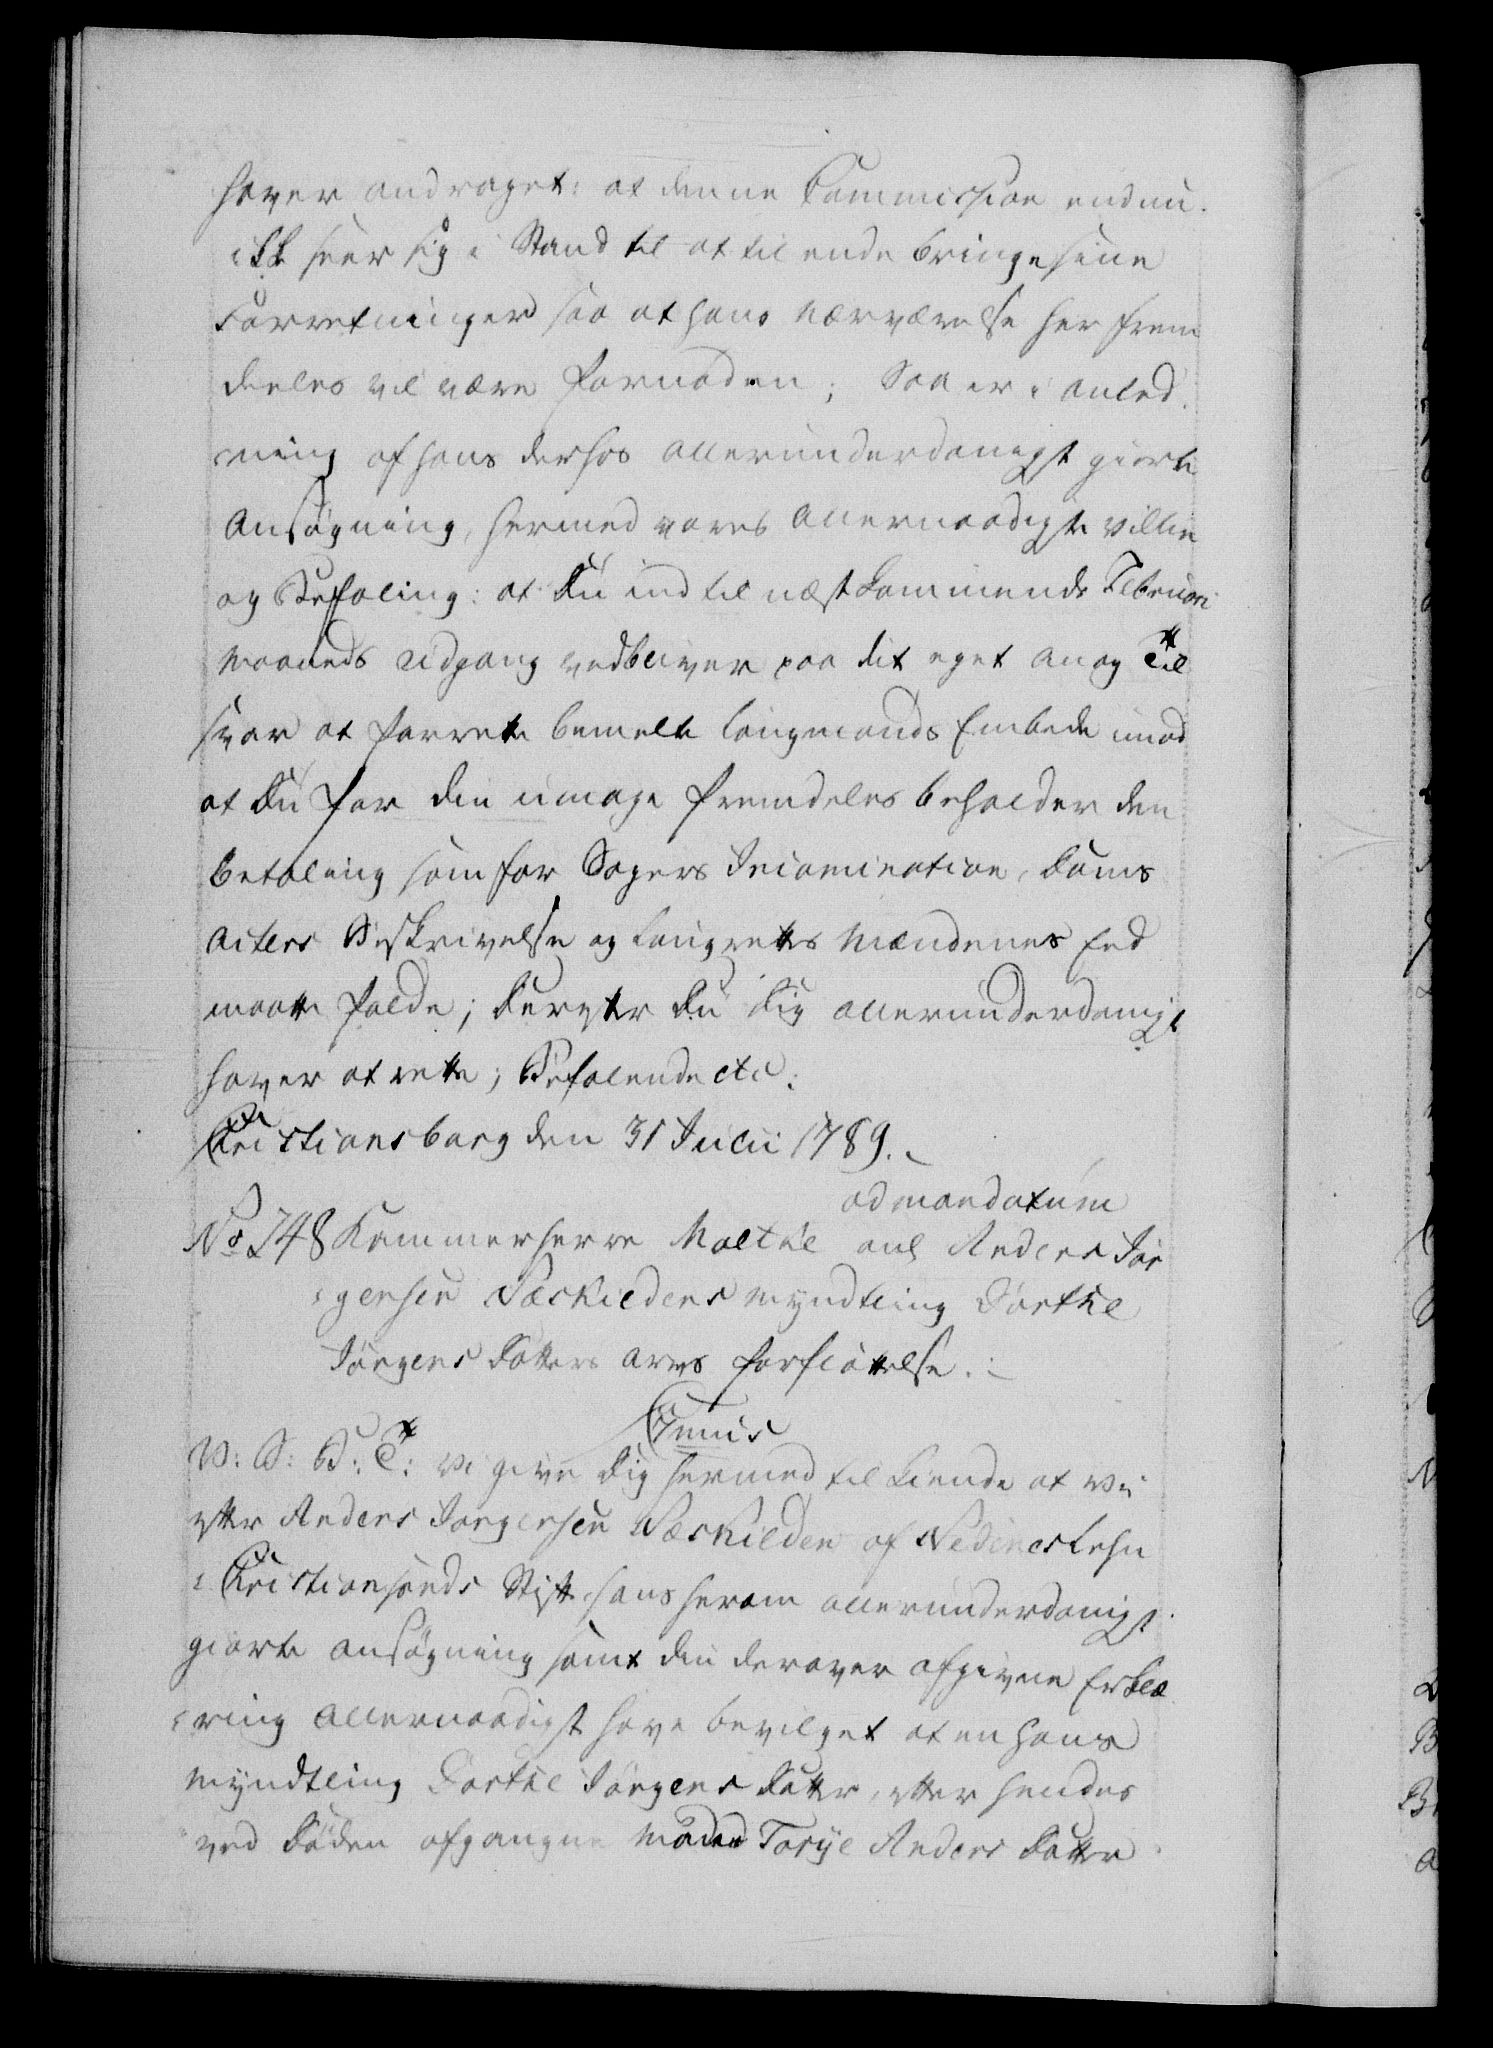 haver andraget: at denne Commission endnu
ikke seer sig i Stand til at til ende bringe sine
Forretninger saa at hans nærværelse her frem
deeles vil være fornøden; Saa er i anled
ning af hans derhos allerunderdanigst giorte
Ansøgning, hermed vores allernaadigste villie
og Befaling: at Du indtil næstkommende Februari
Maaneds Udgang vedbliver paa dit eget an og Til
svar at forrette bemelte Laugmands Embede imod
at Du for din umage fremdeles beholder den
betaling som for Sagers Incamination, Doms
acters Beskrivelse og Laugrettes Mændenes Eed
maatte falde; Derefter Du Dig allerunderdanigst
haver at rette; Befalende etc:
Christiansborg den 31 Julii 1789.
ad mandatum
No 748 Kammerherre Moltke anl Anders Jør
gensen Næskildens myndtling Dorthe
Jørgens Datters arvs forfløttelse.
Gratis
V: S: B: T: Vi give Dig hermed til kiende at Vi
efter Anders Jørgensen Næskilden af Nedenes Lehn
i Christiansands Stift hans herom allerunderdanigst
giorte ansøgning samt din derover afgivne Erklæ
ring allernaadigst have bevilget at en hans
myndtling Dorthe Jørgens Datter, efter hendes
ved Døden afgangne Moder Torije Anders Datter